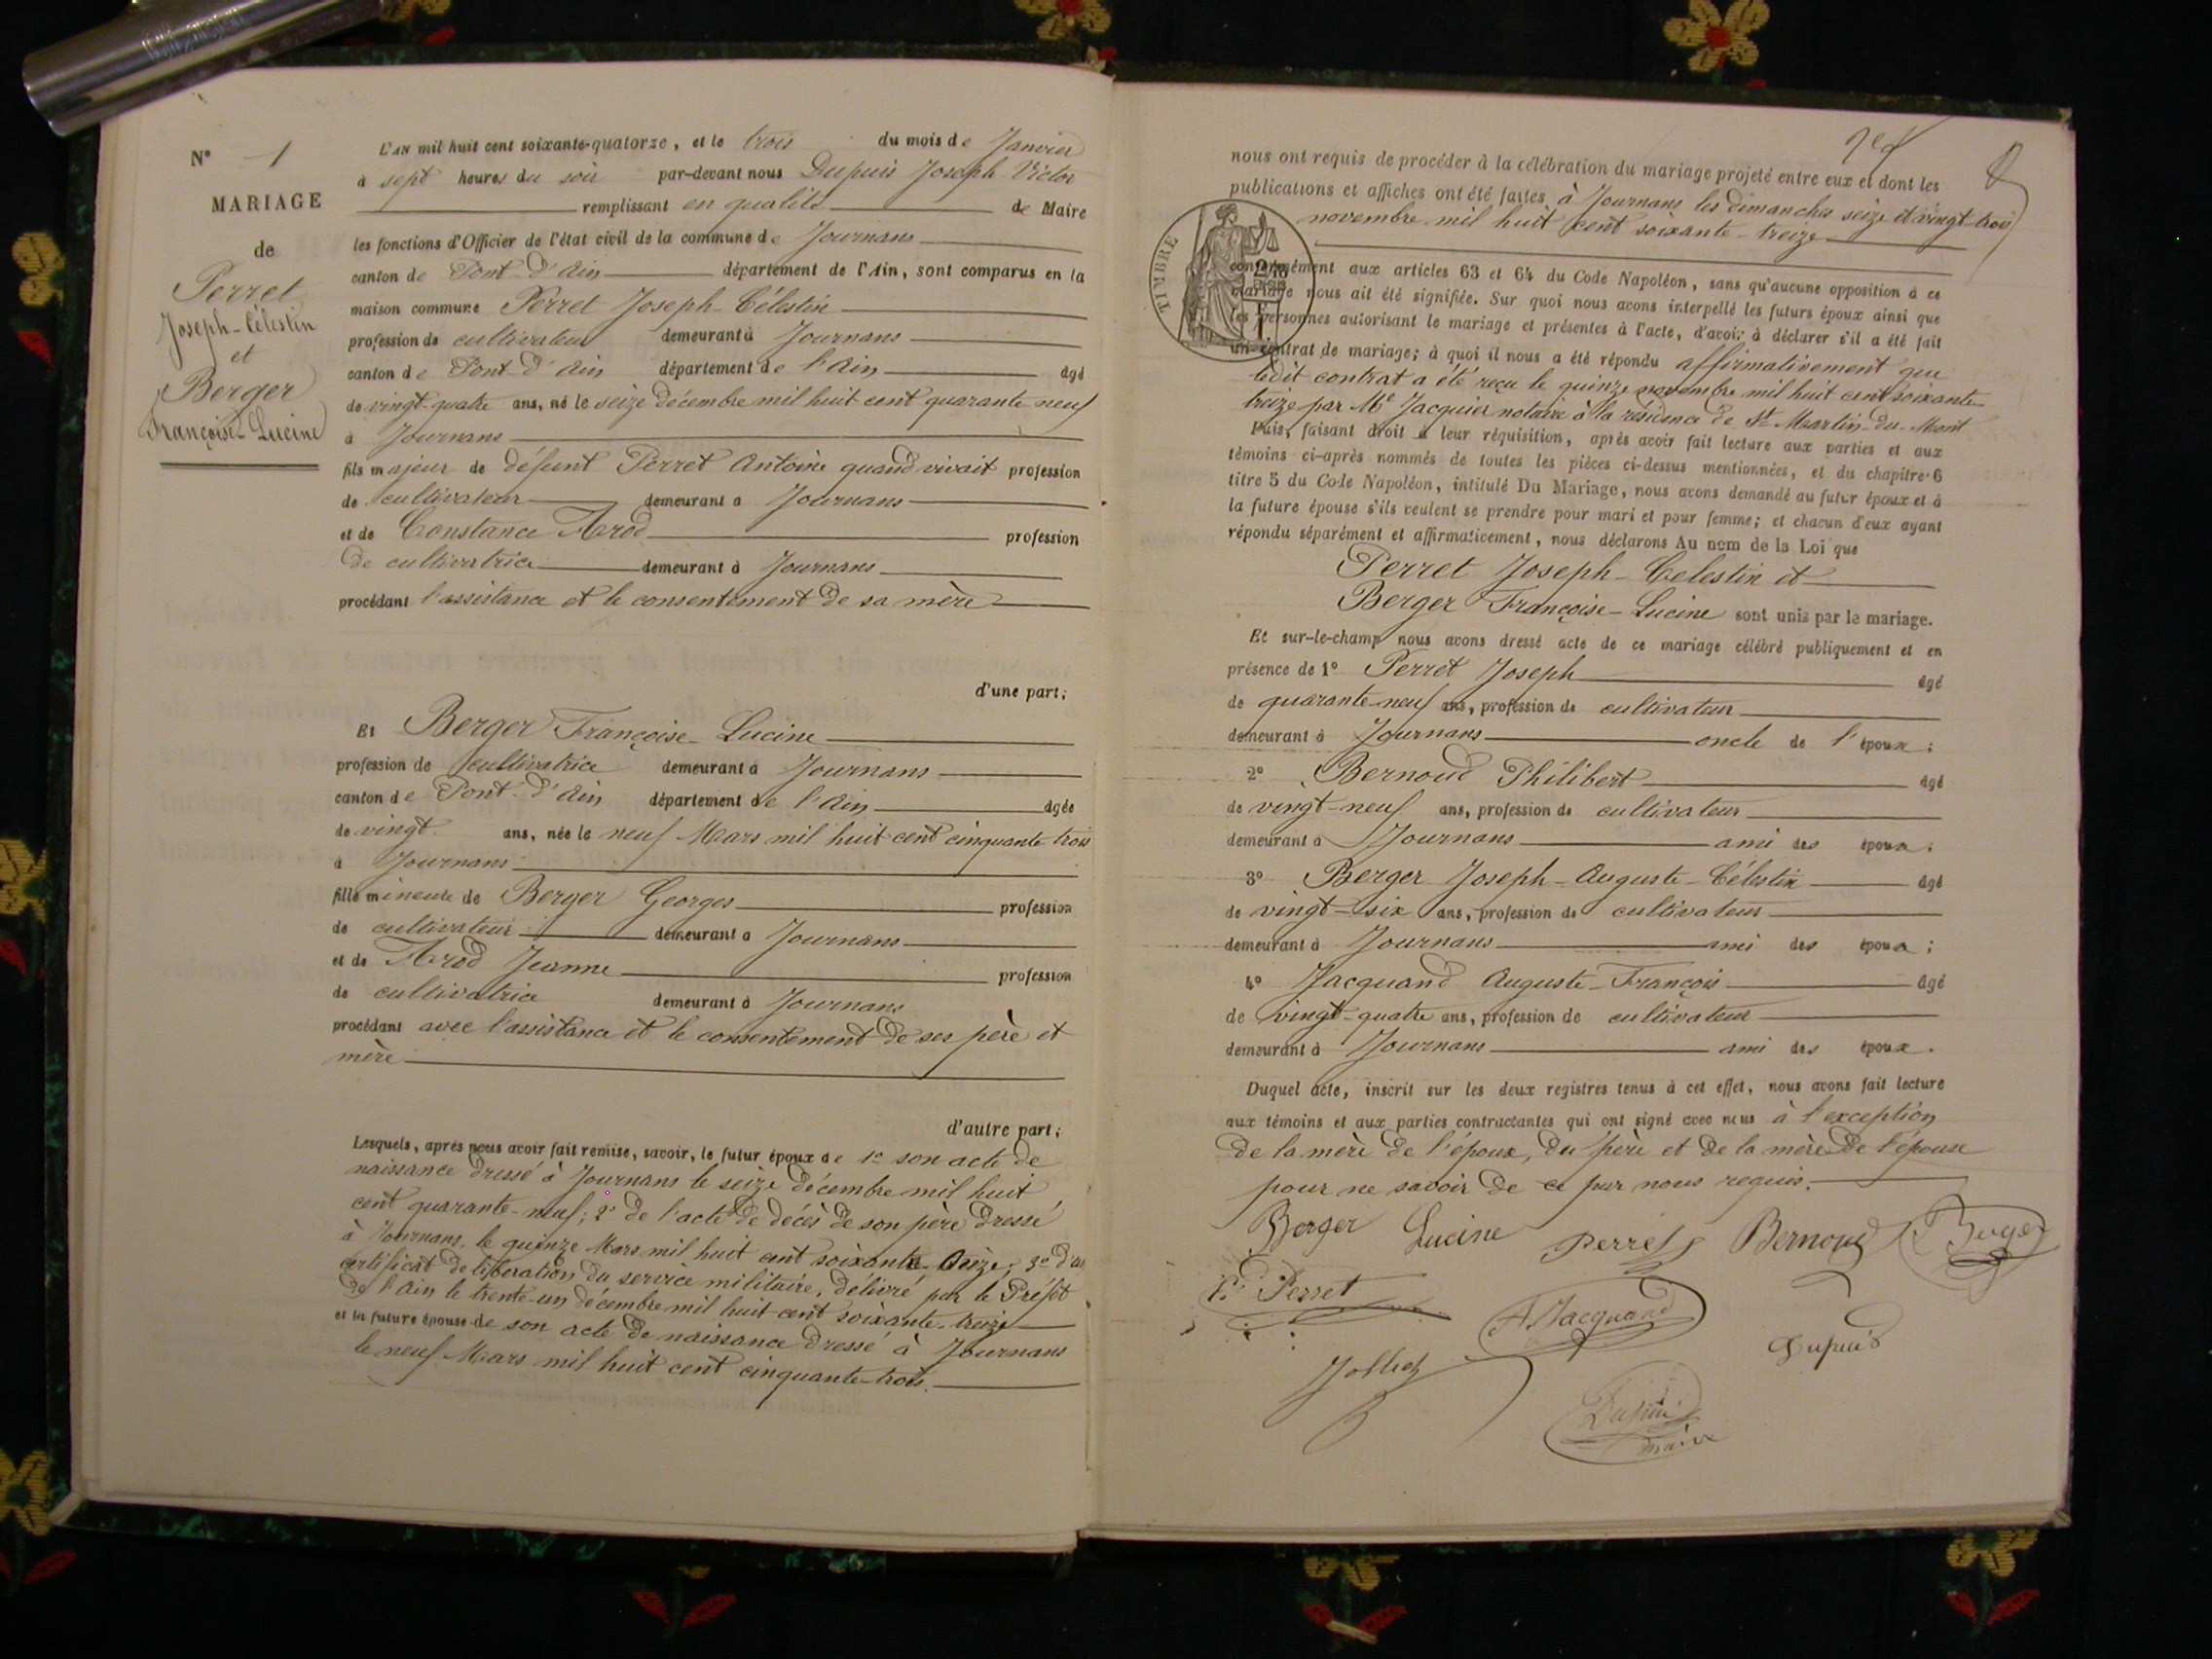 N° 1
MARIAGE
de
Perret
Joseph-Célestin
et
Berger
Françoise-Lucine
L'AN mil huit cent soixante-quatorze, et le trois du mois de Janvier
à sept heures du soir par-devant nous Dupuis Joseph Victor
remplissant en qualité de Maire
les fonctions d'Officier de l'état civil de la commune de Journans
canton de Pont-d'Ain département de l'Ain, sont comparus en la
maison commune Perret Joseph-Célestin
profession de cultivateur demeurant à Journans
canton de Pont-d'Ain département de l'Ain âgé
de vingt-quatre ans, né le seize décembre mil huit cent quarante neuf
à Journans
fils majeur de défunt Perret Antoine quand vivait profession
de cultivateur demeurant à Journans
et de Constance Arod profession
de cultivatrice demeurant à Journans
procédant l'assistance et le consentement de sa mère
d'une part;
Et Berger Françoise-Lucine
profession de cultivatrice demeurant à Journans
canton de Pont-d'Ain département de l'Ain âgée
de vingt ans, née le neuf Mars mil huit cent cinquante trois
à Journans
fille mineure de Berger Georges profession
de cultivateur demeurant à Journans
et de Arod Jeanne profession
de cultivatrice demeurant à Journans
procédant avec l'assistance et le consentement de ses père et
mère
d'autre part;
Lesquels, après nous avoir fait remise, savoir, le futur époux de 1° son acte de
naissance dressé à Journans le seize décembre mil huit
cent quarante-neuf; 2° de l'acte de décès de son père dressé
à Journans, le quinze Mars mil huit cent soixante onze; 3° d'un
certificat de libération du service militaire, délivré par le Préfet
de l'Ain le trente-un décembre mil huit cent soixante-treize
et la future épouse de son acte de naissance dressé à Journans
le neuf Mars mil huit cent cinquante-trois.
nous ont requis de procéder à la célébration du mariage projeté entre eux et dont les
publications et affiches ont été faites à Journans les dimanches seize et vingt-trois
novembre mil huit cent soixante-treize
TIMBRE
conformément aux articles 63 et 64 du Code Napoléon, sans qu'aucune opposition à ce
mariage nous ait été signifiée. Sur quoi nous avons interpellé les futurs époux ainsi que
les personnes autorisant le mariage et présentes à l'acte, d'avoir à déclarer s'il a été fait
un contrat de mariage; à quoi il nous a été répondu affirmativement que
ledit contrat a été reçu le quinze novembre mil huit cent soixante-
treize par Me Jacquier notaire à la résidence de St Martin-du-Mont
Puis, faisant droit à leur réquisition, après avoir fait lecture aux parties et aux
témoins ci-après nommés de toutes les pièces ci-dessus mentionnées, et du chapitre 6
titre 5 du Code Napoléon, intitulé Du Mariage, nous avons demandé au futur époux et à
la future épouse s'ils veulent se prendre pour mari et pour femme; et chacun d'eux ayant
répondu séparément et affirmativement, nous déclarons Au nom de la Loi que
Perret Joseph-Celestin et
Berger Françoise-Lucine sont unis par le mariage.
Et sur-le-champ nous avons dressé acte de ce mariage célébré publiquement et en
présence de 1° Perret Joseph âgé
de quarante-neuf ans, profession de cultivateur
demeurant à Journans oncle de l'époux;
2° Bernoud Philibert âgé
de vingt-neuf ans, profession de cultivateur
demeurant à Journans ami des époux;
3° Berger Joseph-Auguste-Célestin âgé
de vingt-six ans, profession de cultivateur
demeurant à Journans ami des époux;
4° Jacquand Auguste-François âgé
de vingt-quatre ans, profession de cultivateur
demeurant à Journans ami des époux.
Duquel acte, inscrit sur les deux registres tenus à cet effet, nous avons fait lecture
aux témoins et aux parties contractantes qui ont signé avec nous à l'exception
de la mère de l'époux, du père et de la mère de l'épouse
pour ne savoir de ce par nous requis.
Berger Lucine Perret Bernoud Berger
Perret A. Jacquand Dupuis
Jolliet
Dupuis
maire